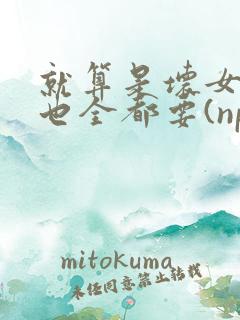 就算是坏女
也全都要(np
mitokuma
未任同意禁止转载